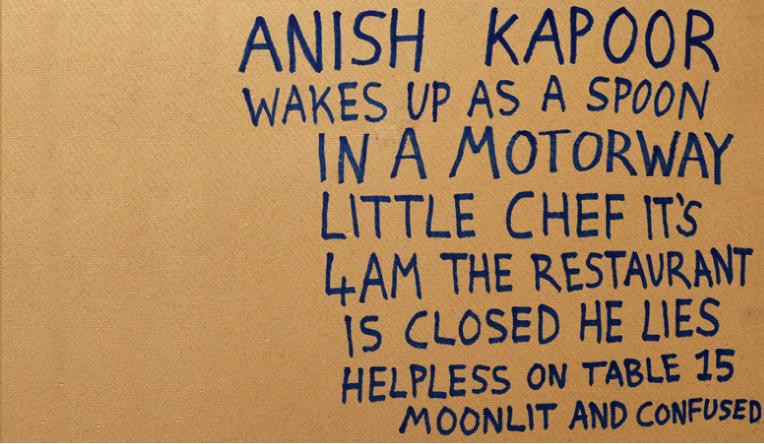 ANISH KAPOOR
WAKES UP AS A SPOON
IN A MOTORWAY
LITTLE CHEF IT'S
4AM THE RESTAURANT
IS CLOSED HE LIES
HELPLESS ON TABLE 15
MOONLIT AND CONFUSED